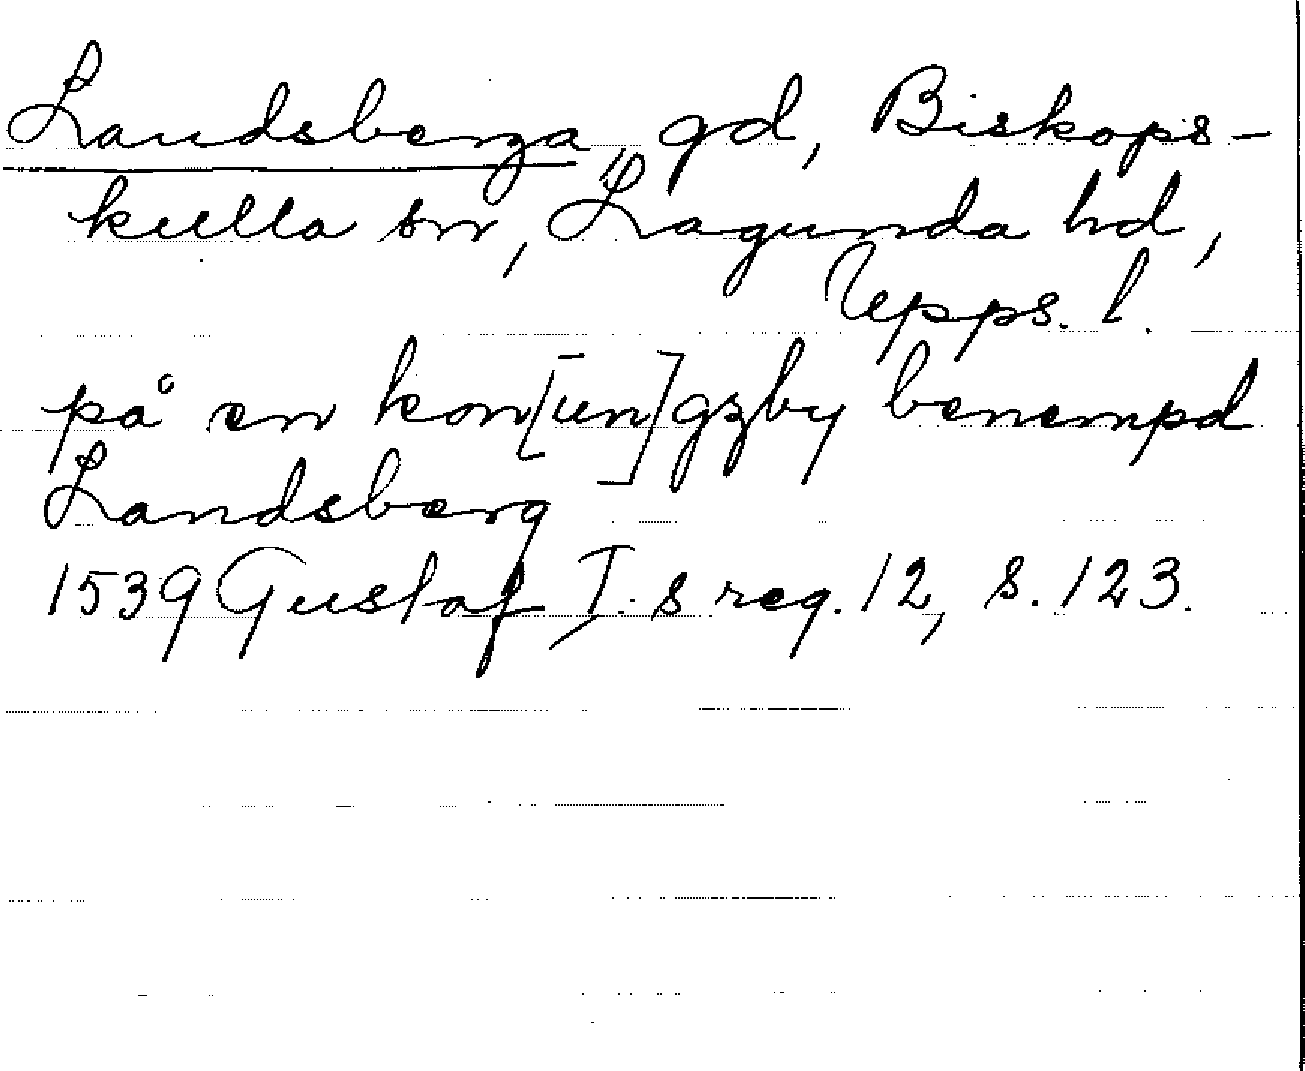 Landsberga, gd, Biskops-
kulla sn, Lagunda hd,
Upps. l.
på en kon[un]gzby benempd
Landsberg
1539 Gustaf I.s reg. 12, s. 123.